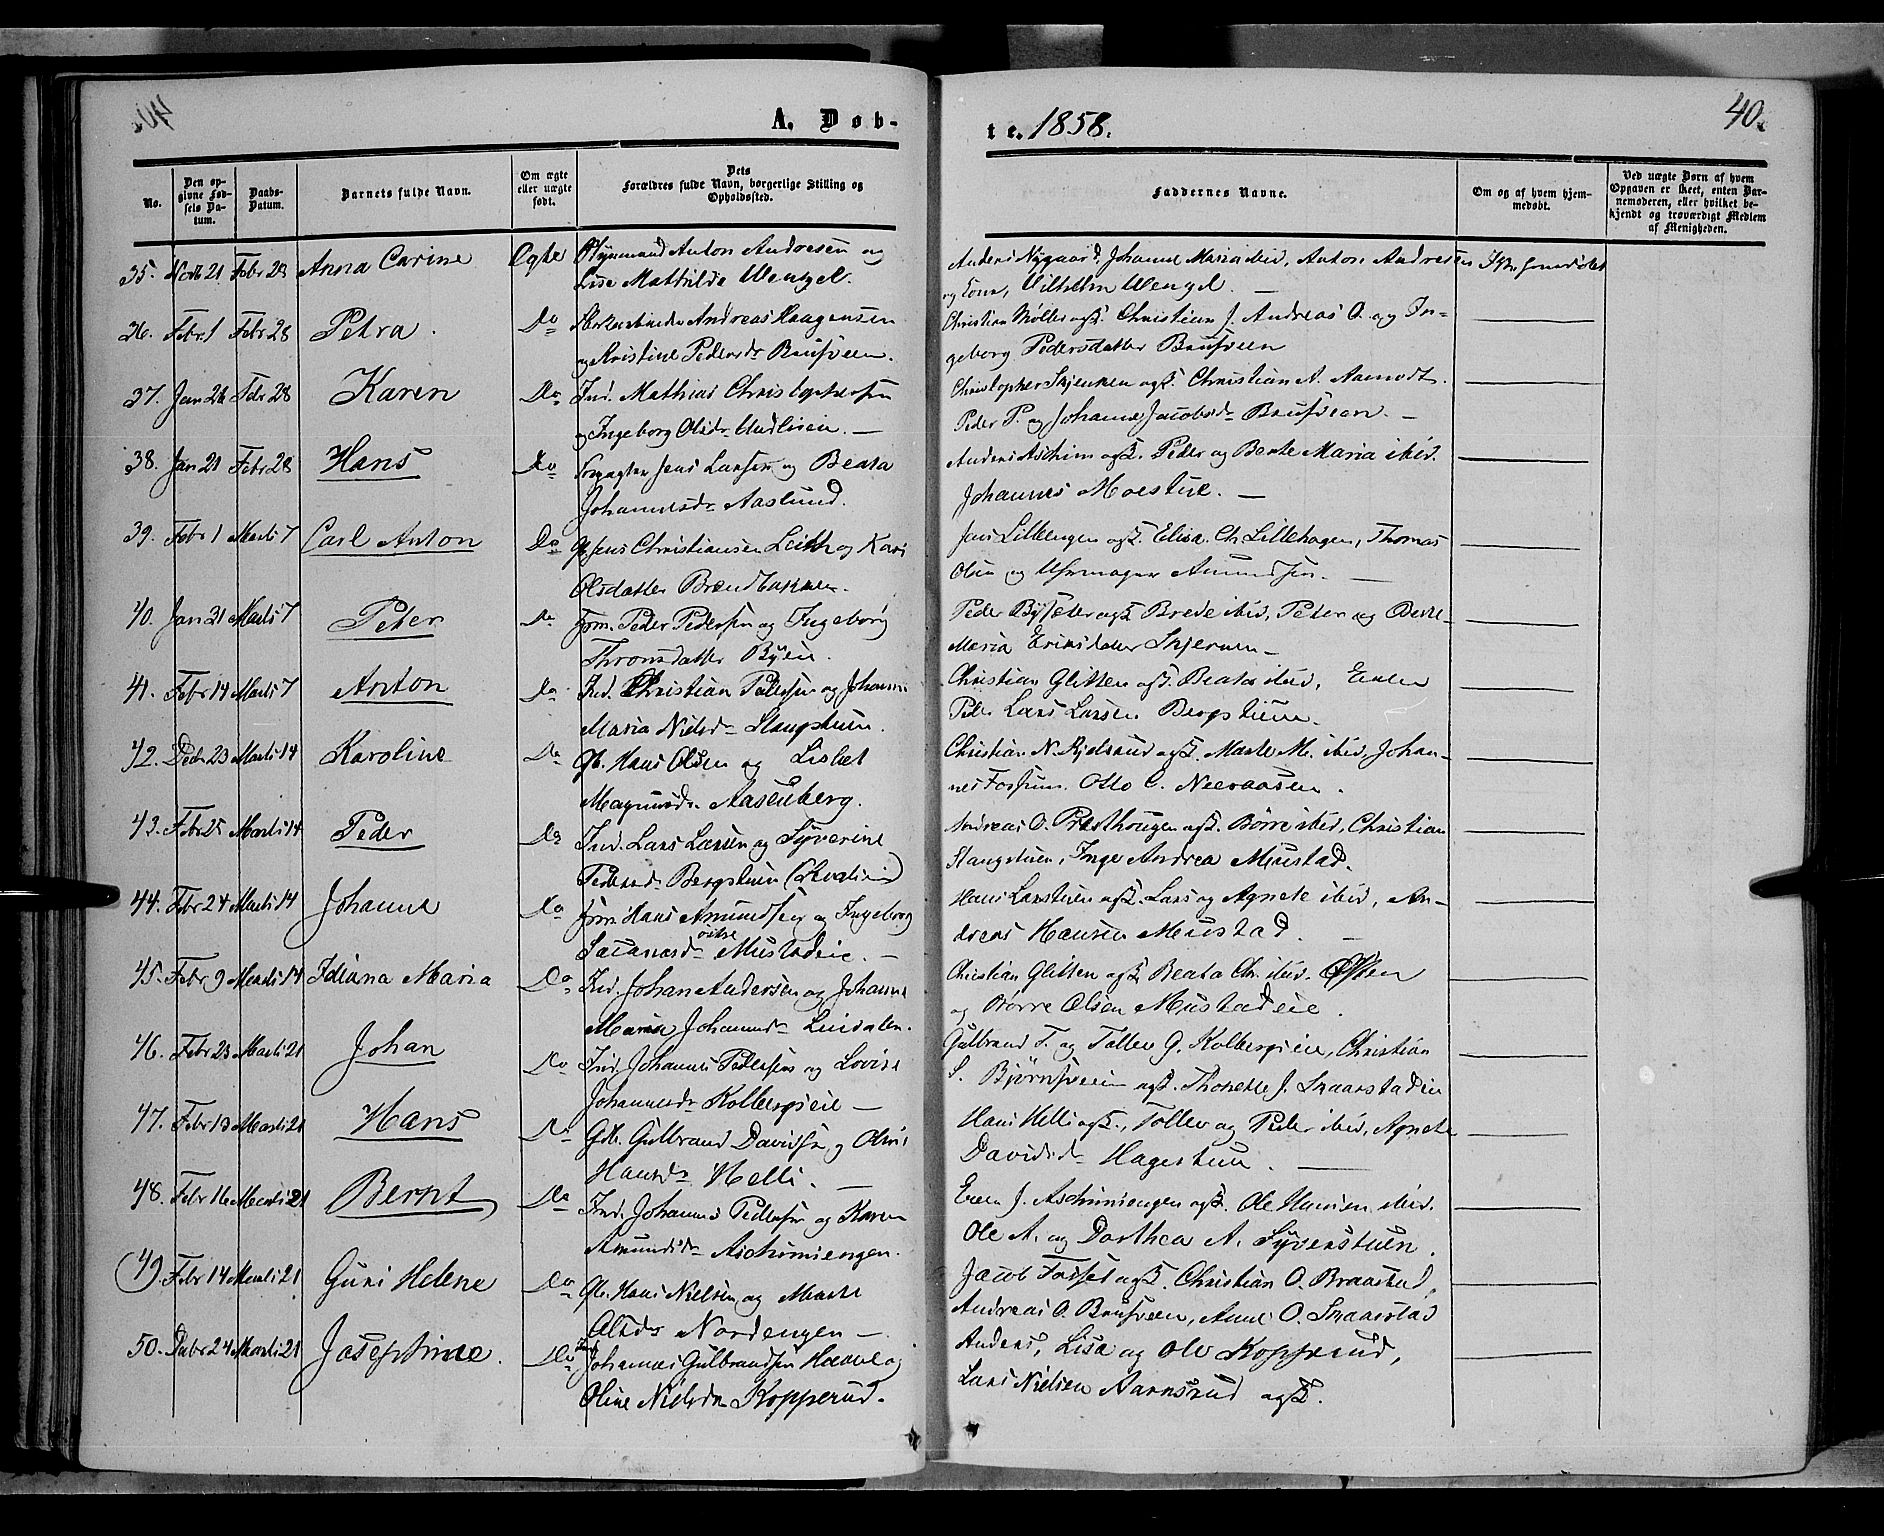 40.
A. Døb-
te. 1858.
40.
No.
Den opgivne Fødsels Datum.
Daabs-Datum.
Barnets fulde Navn.
Om ægte eller uægte født.
Dets Forældres fulde Navn, borgerlige Stilling og Opholdssted.
Faddernes Navne.
Om og af hvem hjemmedøbt.
Ved uægte Børn af hvem Opgaven er skeet, enten Barnemoderen, eller hvilket bekjendt og troværdigt Medlem af Menigheden.
35. Novb 21 Febr 28 Anna Carine Ægte Anton Andresen og
Lise Mathilde Wentzel.
Anders Nygaard, Johanne Maria ibid, Anton Andresen
og Kone, Vilhelm Wengel. —
36. Febr 1 Febr 28 Petra. Do Andreas Haagensen
og Kristine Pedersdr Brufveen.
Christian Møller og K. Christian J. Andreas O. og In-
geborg Pedersdatter Brufveen
37. Jan 26 Febr 28 Karen Do Ind. Mathias Christophersen
og Ingeborg Olsdr —
Christopher Skjenken og K. Christian A. Aamodt.
Peder P. og Johanne Jacobsdr Brufveen. —
38. Jan 21 Febr 28 Hans Do Forpagter Jens Larsen og Beata
Johannesdr Aaslund.
Anders Aschim og K. Peder og Beate Maria ibid.
Johannes Moestue. —
39. Febr 1 Marts 7 Carl Anton Do Jens Christiansen Leith og Kari
Olsdatter Brændbakken.
Jens Lilleengen og K. Elisa. Ch. Lillehagen, Thomas
Olsen og Uhrmager Amundsen. —
40. Jan 31 Marts 7 Peter Do Peder Pedersen og Ingeborg
Thronsdatter Byeie.
Peder og K. Brede ibid, Peter og
Maria Eriksdatter Skjerven —
41. Febr 14 Marts 7 Anton Do Ind. Christian Pedersen og Johanne
Maria Nielsdr Stangstuen.
Christian Glitten og K. Beata ibid, Even
Peder Lars Larsen Bergstuen.
42. Decb 23 Marts 14 Karoline Do Gb. Hans Olsen og Lisbet
Magnusdr Aasenberg.
Christian N. Kjelsrud og K. Marte M. ibid, Johan-
nes Fossum. Otto C. Neeraasen.
43. Febr 25 Marts 14 Peder Do Ind. Lars Larsen og Syverine
Pedersdr Bergstuen
Andreas O. Præsthougen og K. Børre ibid, Christian
Stangstuen, Inge Andrea Mustad.
44. Febr 24 Marts 14 Johanne Do Hans Amundsen og Ingeborg
østre Mustadeie. —
Hans Larstuen og K. Lars og Agnete ibid, An-
dreas Hansen Mustad. —
45. Febr 9 Marts 14 Idiana Maria Do Ind. Johan Andersen og Johanne
Maria Johannesdr Lindalen.
Christian Glitten og K. Beata Ch. ibid. Østen
og Børre Olsen Mustadeie.
46. Febr 23 Marts 21 Johan Do Ind. Johannes Pedersen og Lovise
Johannesdr Kolbergseie —
Gulbrand T. og Tollev G. Kolbergseie, Christian
S. og K. Thonette J.
47. Febr 13 Marts 21 Hans Do Gb. Gulbrand Davidsen og
Hansdr Helli. —
Hans Helli og K., Tollev og Peder ibid, Agnete
Davidsdr Hagestuen. —
48. Febr 16 Marts 21 Bernt Do Ind. Johannes Pedersen og Karen
Amundsdr Aschimsengen.
Even J. Aschimsengen og K. Ole Hansen ibid.
Ole A. og Dorthea A. Syverstuen.
49) Febr 14 Marts 21 Guri Helene Do Gb. Hans Nielsen og Marte
Olsdr Nordengen —
Jacob Fosset og K. Christian O. Braastad,
Andreas O. Brufveen, Anne O. Snaarstad
50. Decbr 24 Marts 21 Josephine. Do Johannes Gulbrandsen og
Oline Nielsdr Kopperud.
Anders, Lisa og Ole Kopperud,
Lars Nielsen Aarnsrud og K.